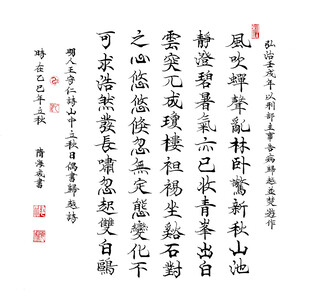 弘治壬戌年以刑部主事告病歸越並楚遊作
風吹蟬聲亂林卧驚新秋山池
靜澄碧暑氣亦已收青峯出白
雲突兀成瓊樓袒裼坐谿石對
之心悠悠倏忽無定態變化不
可求浩然發長嘯忽起雙白鷗
明人王守仁詩山中立秋日偶書歸越詩
時在乙巳年立秋 隋海成書